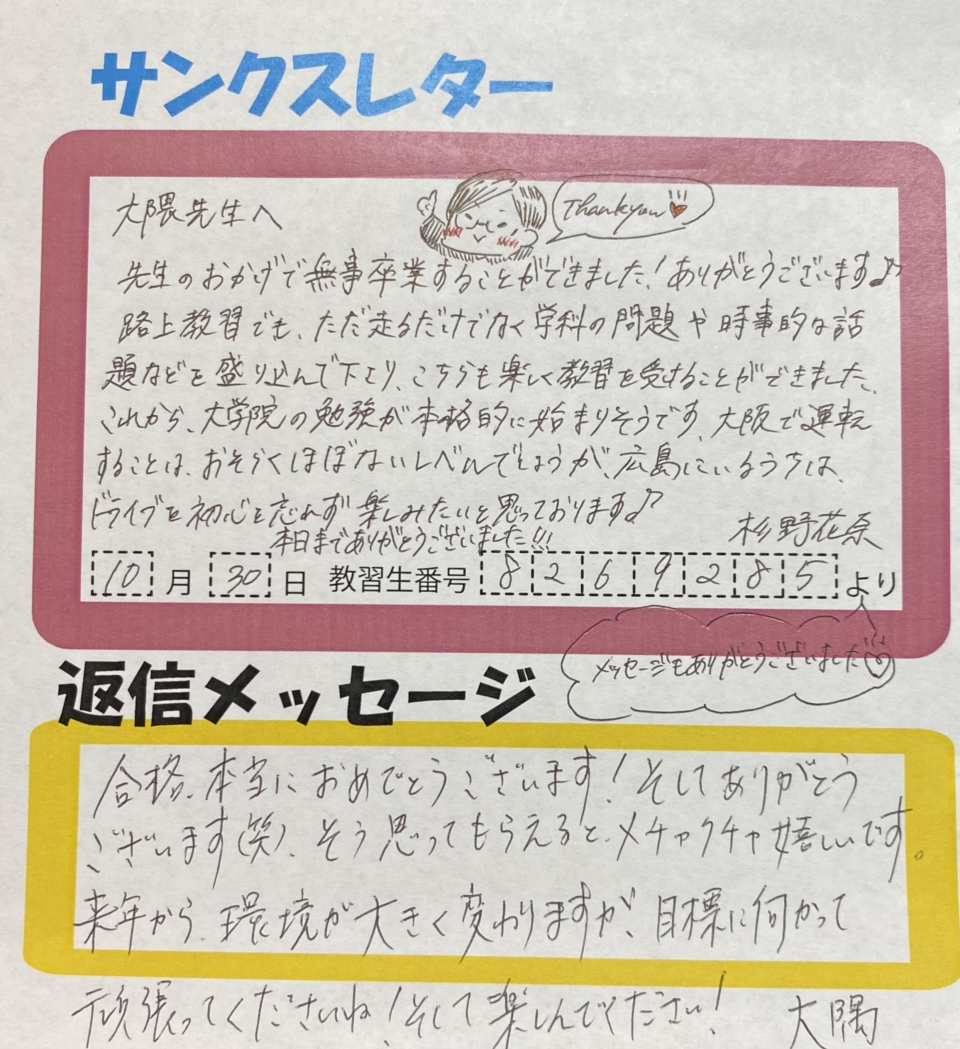 サンクスレター
大隈先生へ
Thankyou
先生のおかげで無事卒業することができました！ありがとうございます♪
路上教習でも、ただ走るだけでなく学科の問題や時事的な話
題などを盛り込んで下さり、こちらも楽しく教習を受けることができました。
これから、大学院の勉強が本格的に始まりそうです。大阪で運転
することは、おそらくほぼないレベルでしょうが、広島にいるうちは、
ドライブを初心を忘れず楽しみたいと思っております♪
本日までありがとうございました!!!
杉野花奈
10月30日 教習生番号 8269285より
メッセージもありがとうございました♡
返信メッセージ
合格、本当におめでとうございます！そしてありがとう
ございます(笑)、そう思ってもらえると、メチャクチャ嬉しいです。
来年から、環境が大きく変わりますが、目標に向かって
頑張ってくださいね！そして楽しんでください！ 大隅